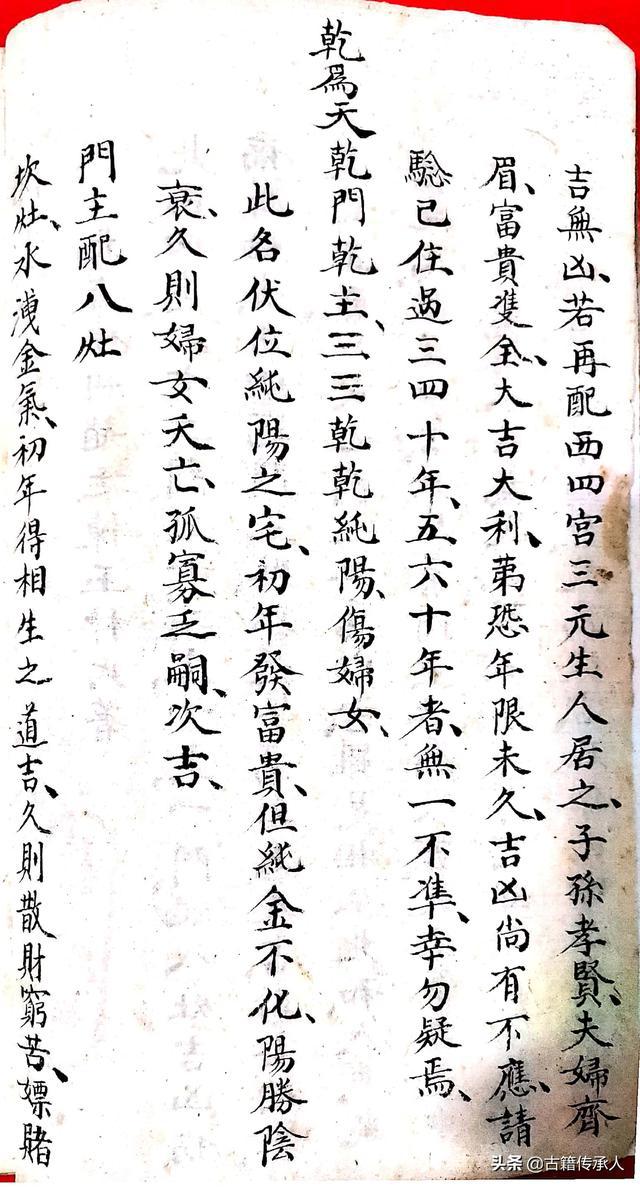 吉無凶、若再配西四宮三元生人居之、子孫孝賢、夫婦齊
眉、富貴雙全、大吉大利、苐恐年限未久、吉凶尚有不應、請
騐已住過三四十年、五六十年者、無一不準、幸勿疑焉、
乾為天乾門乾主、三三乾乾純陽、傷婦女、
此名伏位純陽之宅、初年發富貴、但純金不化、陽勝陰
衰、久則婦女夭亡、孤寡乏嗣、次吉、
門主配八灶
坎灶、水洩金氣、初年得相生之道吉、久則散財窮苦、嫖賭
头条 @古籍传承人